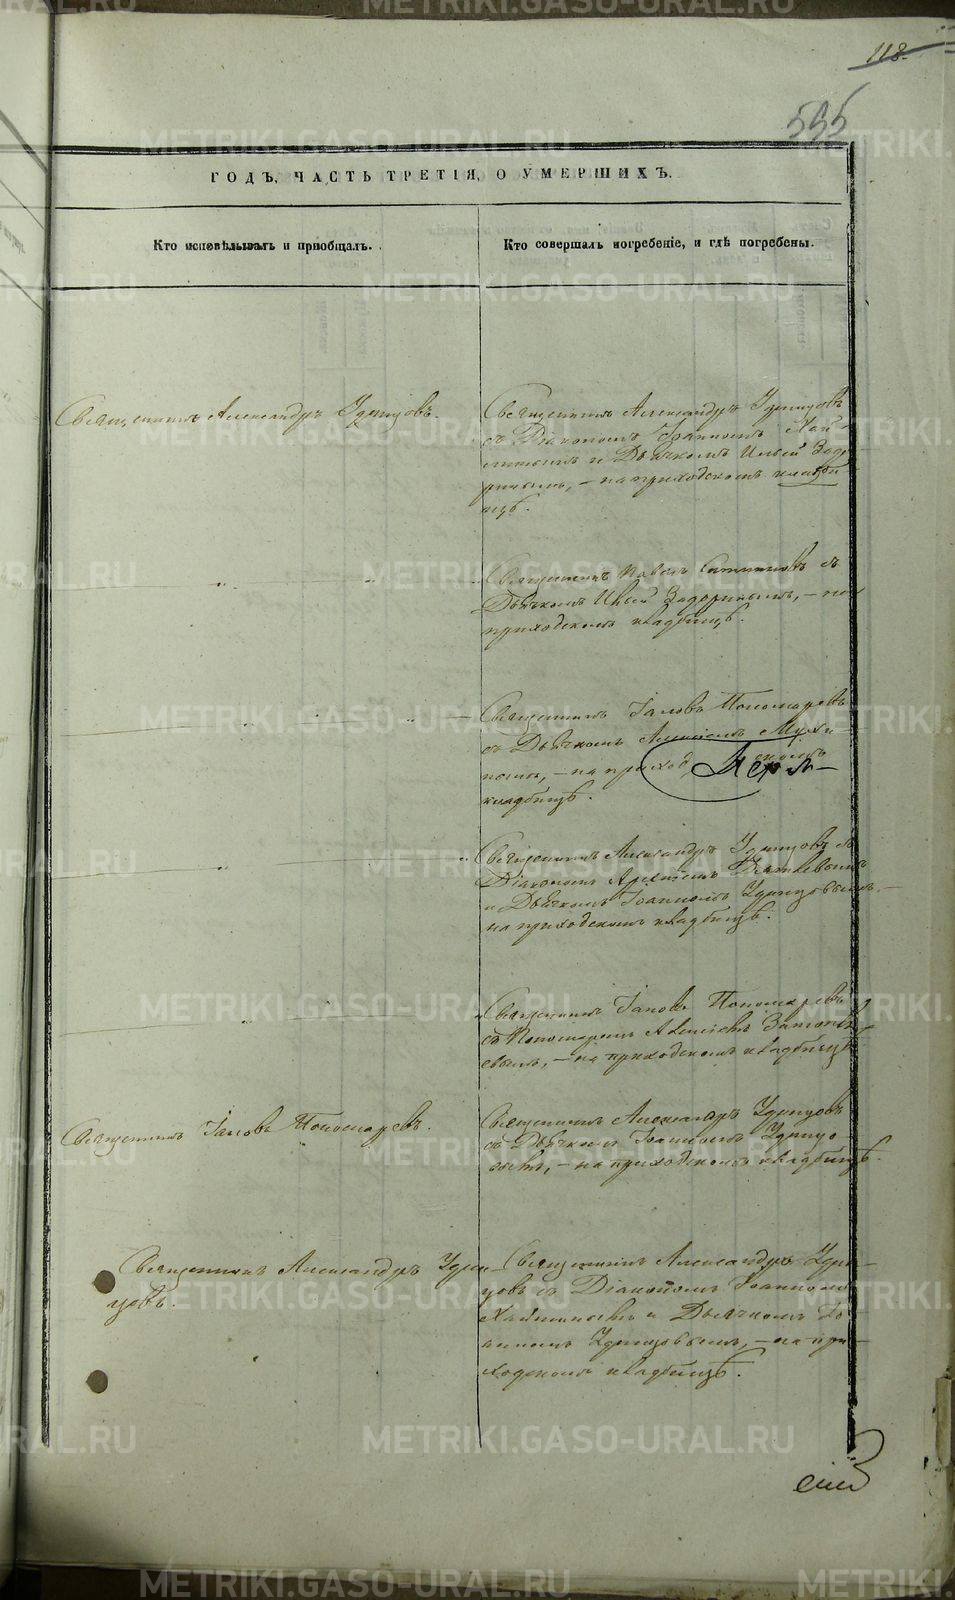 118.
555
ГОДЪ, ЧАСТЬ ТРЕТІЯ, О УМЕРШИХЪ.
Кто исповѣдывалъ и пріобщалъ.
Кто совершалъ погребеніе, и гдѣ погребены.
Священникъ Александръ Удинцовъ.
Священникъ Александръ Удинцовъ
съ Діакономъ Іоанномъ
и Дьячкомъ Ильей Задо
ринымъ, – на приходскомъ кладби
щѣ.
Священникъ Павелъ съ
Дьячкомъ Ильей Задоринымъ, – на
приходскомъ кладбищѣ.
Священникъ Іаковъ Пономаревъ
съ Дьячкомъ Алексіемъ Мухи-
нымъ, – на приход скомъ
Перм–
кладбищѣ.
Священникъ Александръ Удинцовъ съ
Діакономъ
и Дьячкомъ Іоанномъ Удинцовымъ, –
на приходскомъ кладбищѣ.
Священникъ Іаковъ Пономаревъ
съ Пономаремъ Алексіемъ
евымъ, – на приходскомъ кладбищѣ
Священникъ Іаковъ Пономаревъ.
Священникъ Александръ Удинцовъ
съ Дьячкомъ Іоанномъ Удинцо
вымъ, – на приходскомъ кладбищѣ.
Священникъ Александръ Удин–
цовъ.
Священникъ Александръ Удин–
цовъ съ Діакономъ Іоанномъ
и Дьячкомъ Іо
анномъ Удинцовымъ, – на при–
ходскомъ кладбищѣ.
METRIKI.GASO-URAL.RU